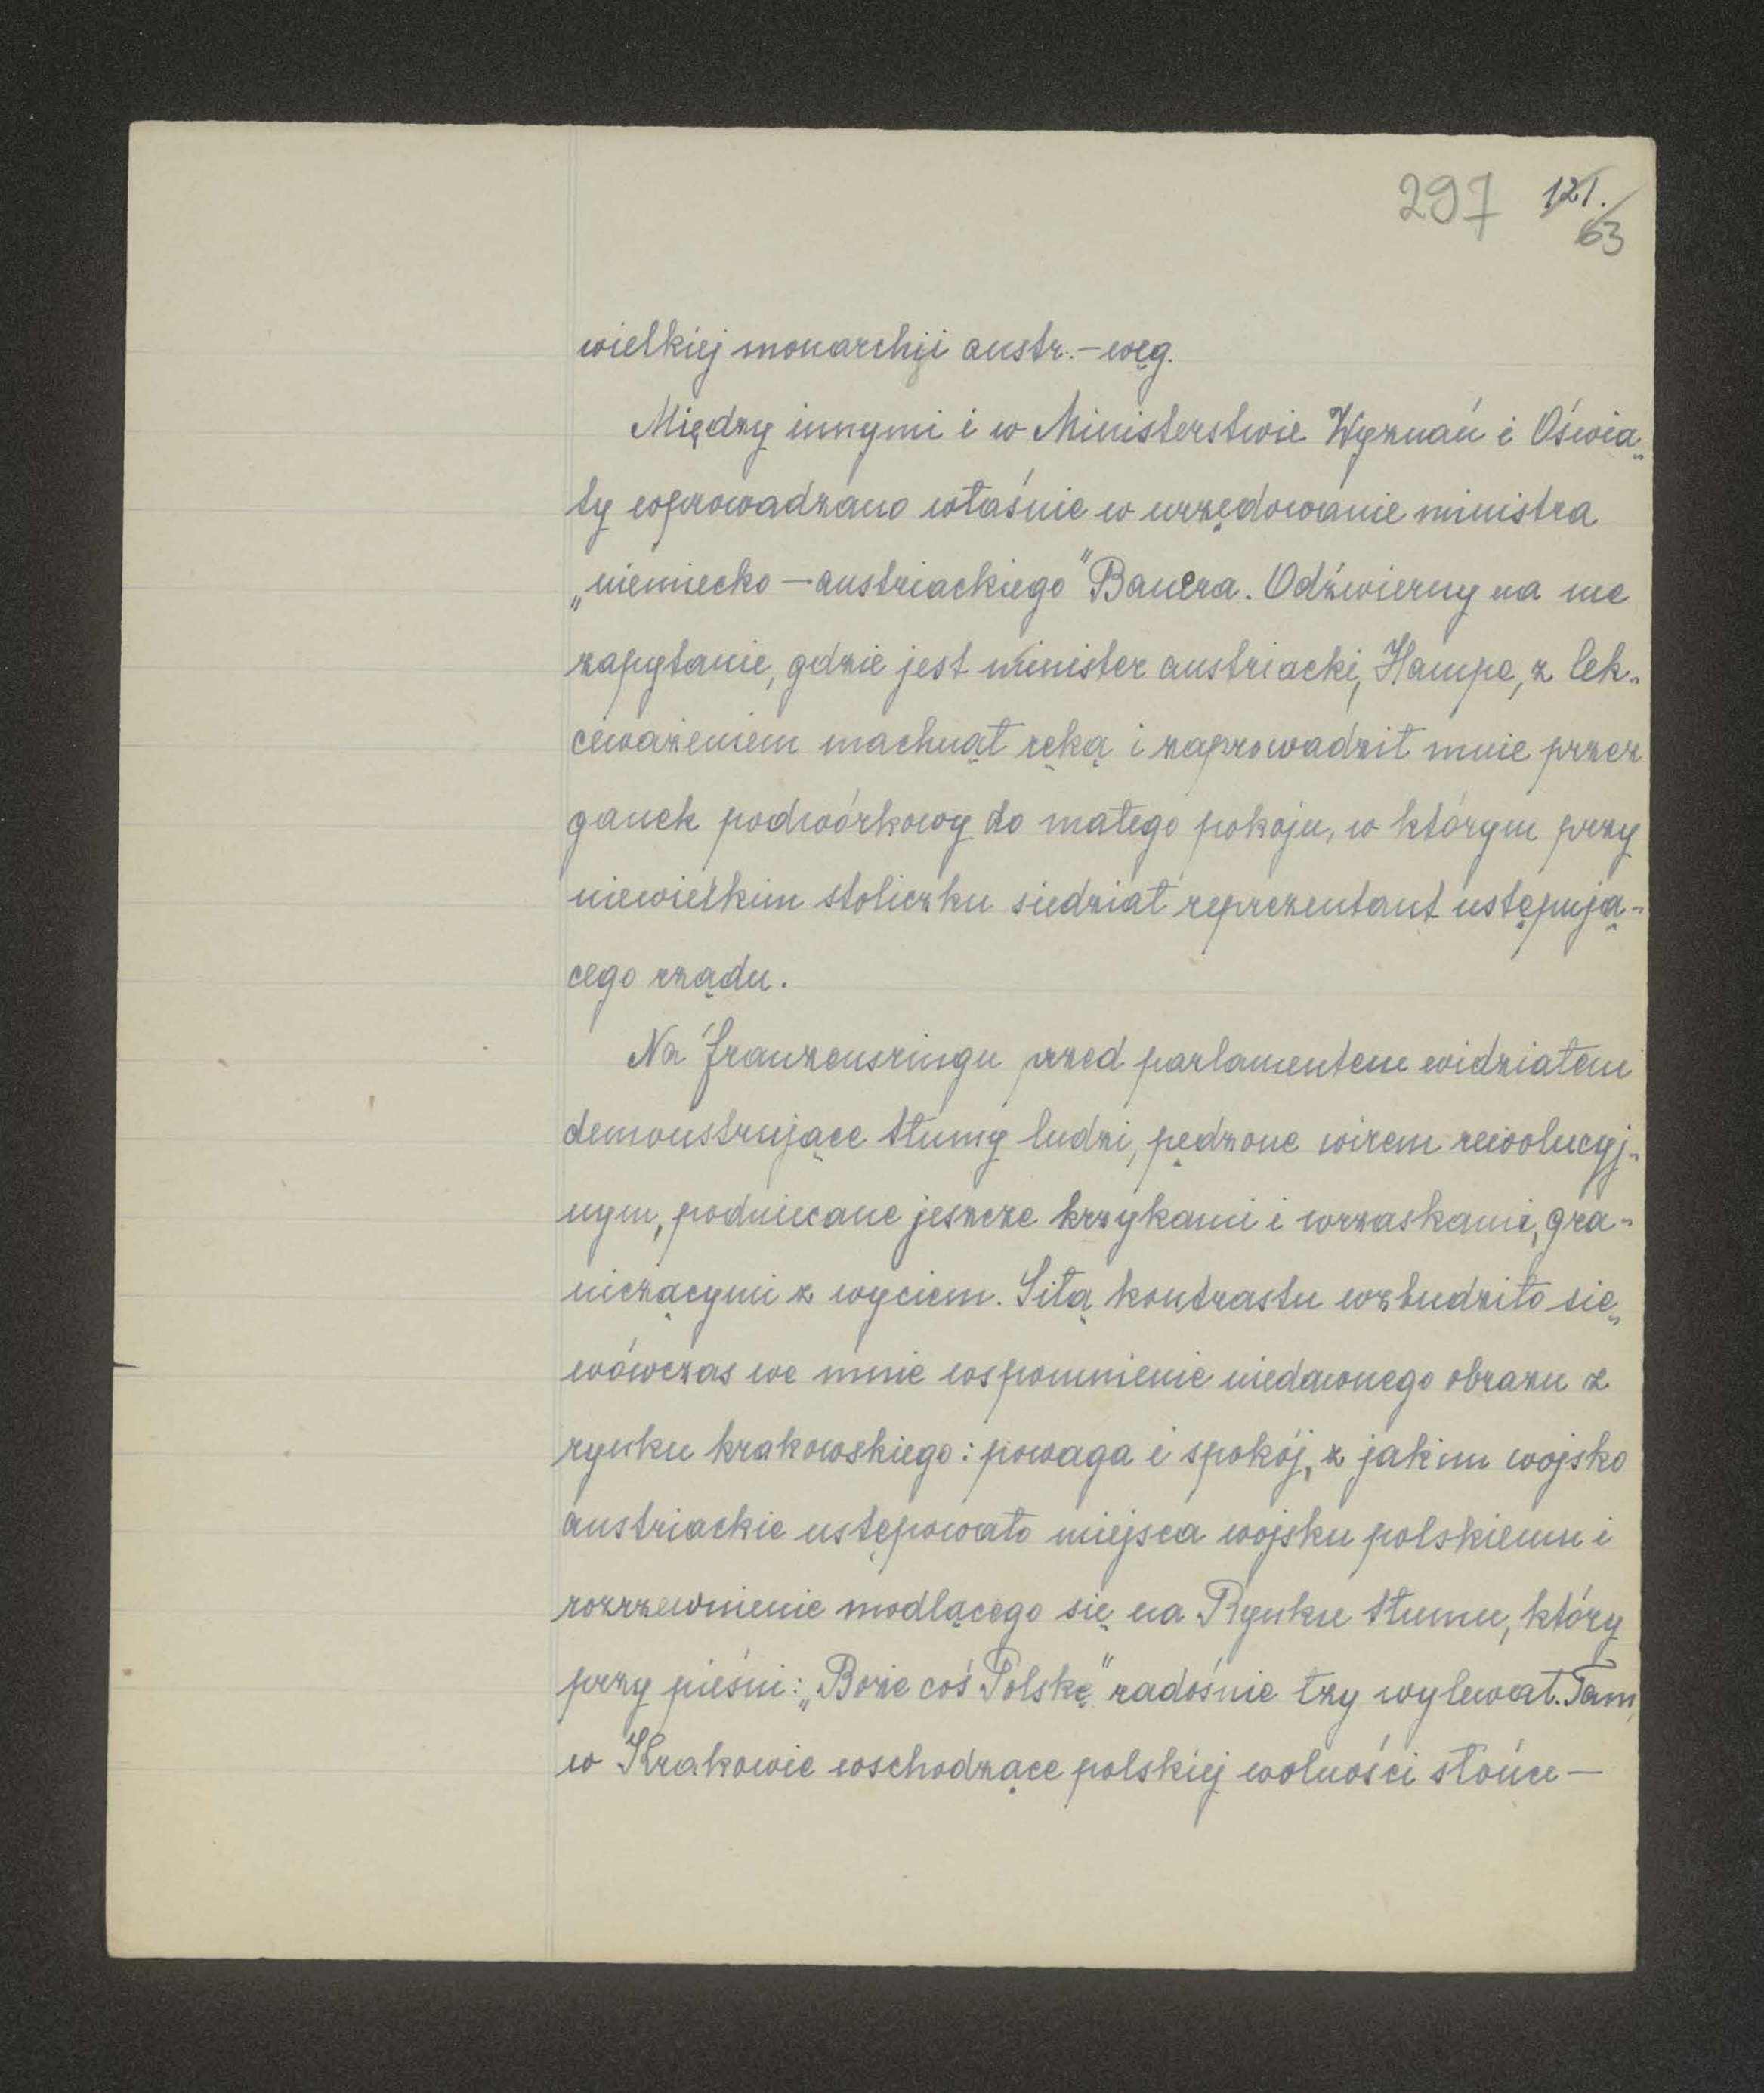 297 121.
63
wielkiej monarchji austr.-węg.
Między innymi i w Ministerstwie Wyznań i Oświa-
ty wprowadzano właśnie w urzędowanie ministra
„niemiecko-austriackiego" Bauera. Odźwierny na me
zapytanie, gdzie jest minister austriacki, Hampe, z lek-
ceważeniem machnął ręką i zaprowadził mnie przez
ganek podwórkowy do małego pokoju, w którym przy
niewielkim stoliczku siedział reprezentant ustępują-
cego rządu.
Na franzensringu przed parlamentem widziałem
demonstrujące tłumy ludzi, pędzone wirem rewolucyj-
nym, podniecane jeszcze krzykami i wrzaskami, gra-
niczącymi z wyciem. Siłą kontrastu wzbudziło się
wówczas we mnie wspomnienie niedawnego obrazu z
rynku krakowskiego: powaga i spokój, z jakim wojsko
austriackie ustępowało miejsca wojsku polskiemu i
rozrzewnienie modlącego się na Rynku tłumu, który
przy pieśni: „Boże coś Polskę" radośnie łzy wylewał. Tam,
w Krakowie wschodzące polskiej wolności słońce—